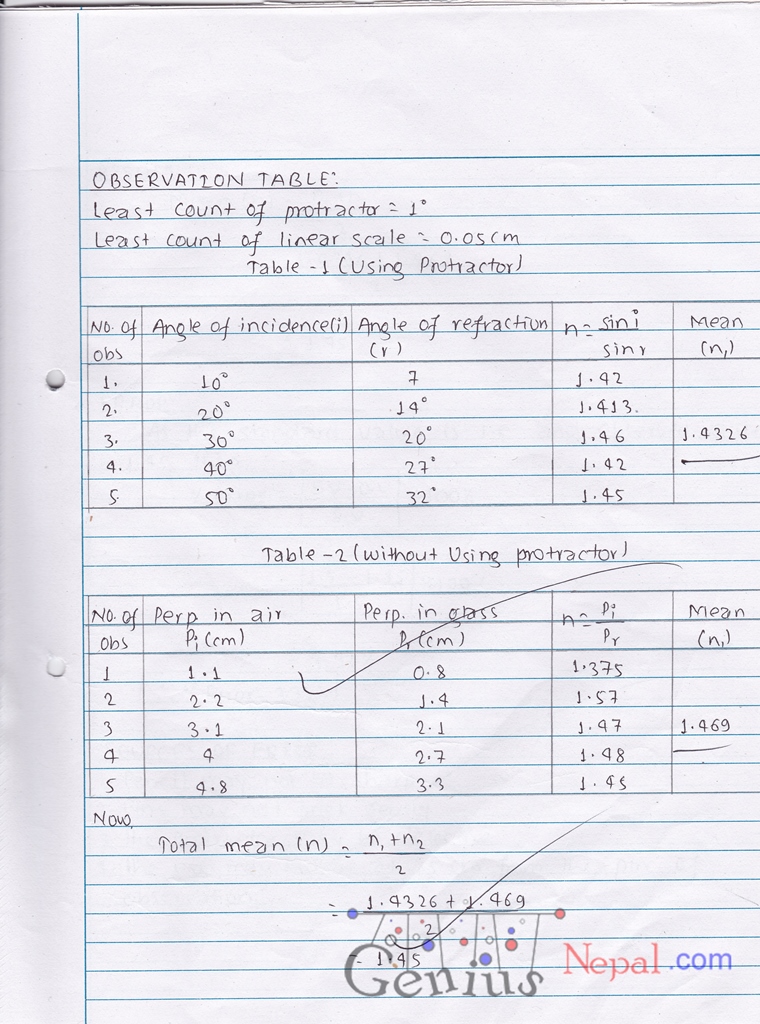 OBSERVATION TABLE:
Least count of protractor = 1°
Least count of linear scale = 0.05cm
Table -1 (Using Protractor)
No. of obs Angle of incidence(i) Angle of refraction (r) n = sin i / sin r Mean (n,)
1. 10° 7 1.42
2. 20° 14° 1.413.
3. 30° 20° 1.46 1.4326
4. 40° 27° 1.42
5. 50° 32° 1.45
Table -2 (without Using protractor)
No. of obs Perp in air Pi (cm) Perp. in glass Pr (cm) n = Pi / Pr Mean (n,)
1 1.1 0.8 1.375
2 2.2 1.4 1.57
3 3.1 2.1 1.47 1.469
4 4 2.7 1.48
5 4.8 3.3 1.45
Now,
Total mean (n) = n, + n2 / 2
= 1.4326 + 1.469 / 2
= 1.45
Genius Nepal.com